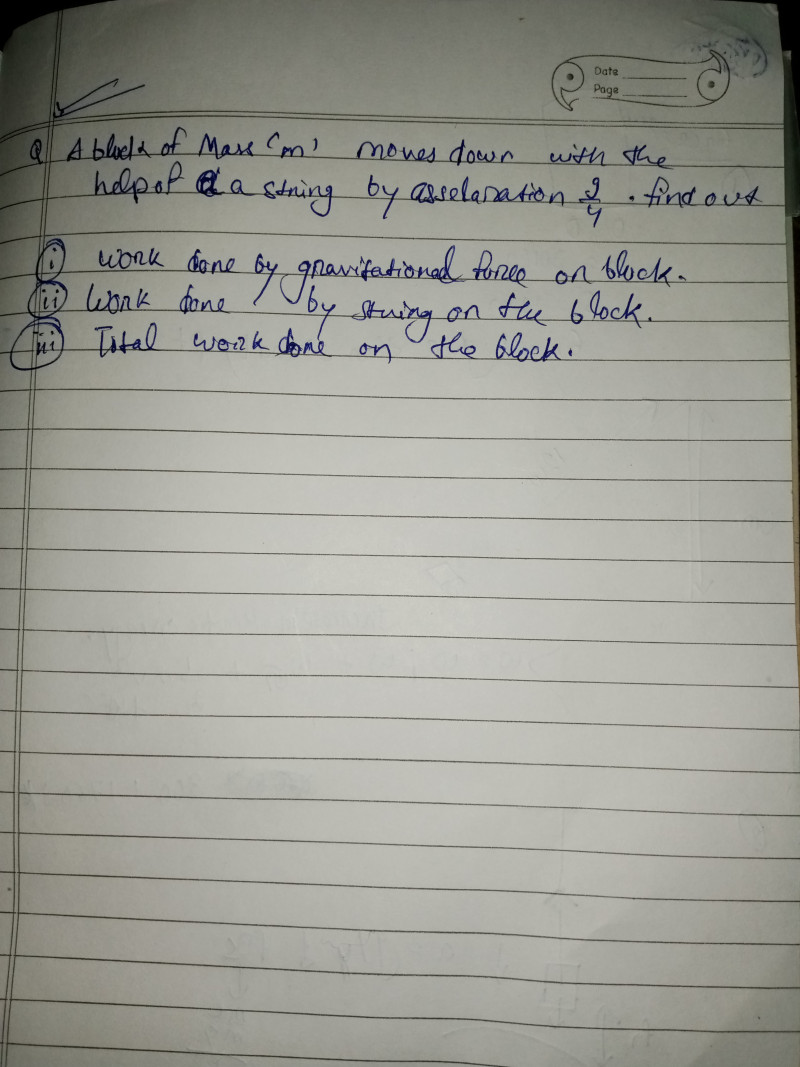 Date
Page
Q A block of Mass 'm' moves down with the
help of a string by asselaration g/4 . find out
i work done by gravitational force on block.
ii work done by string on the block.
iii Total work done on the block.